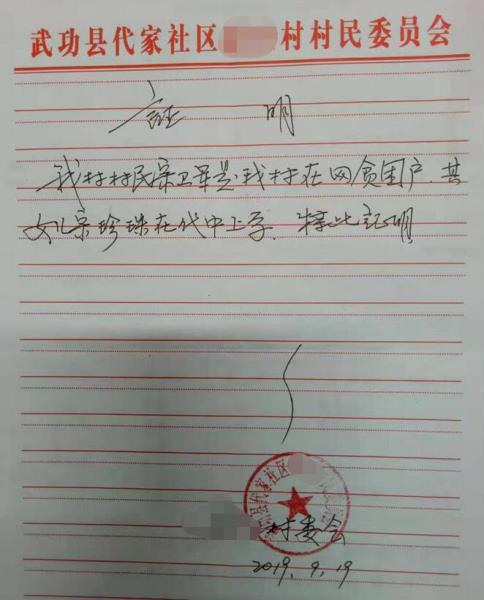 武功县代家社区 村村民委员会
证 明
我村村民宗卫军是我村在网贫困户,其
女儿宗珍珠在代中上学. 特此证明
武功县代家社区
村委会
2019.9.19